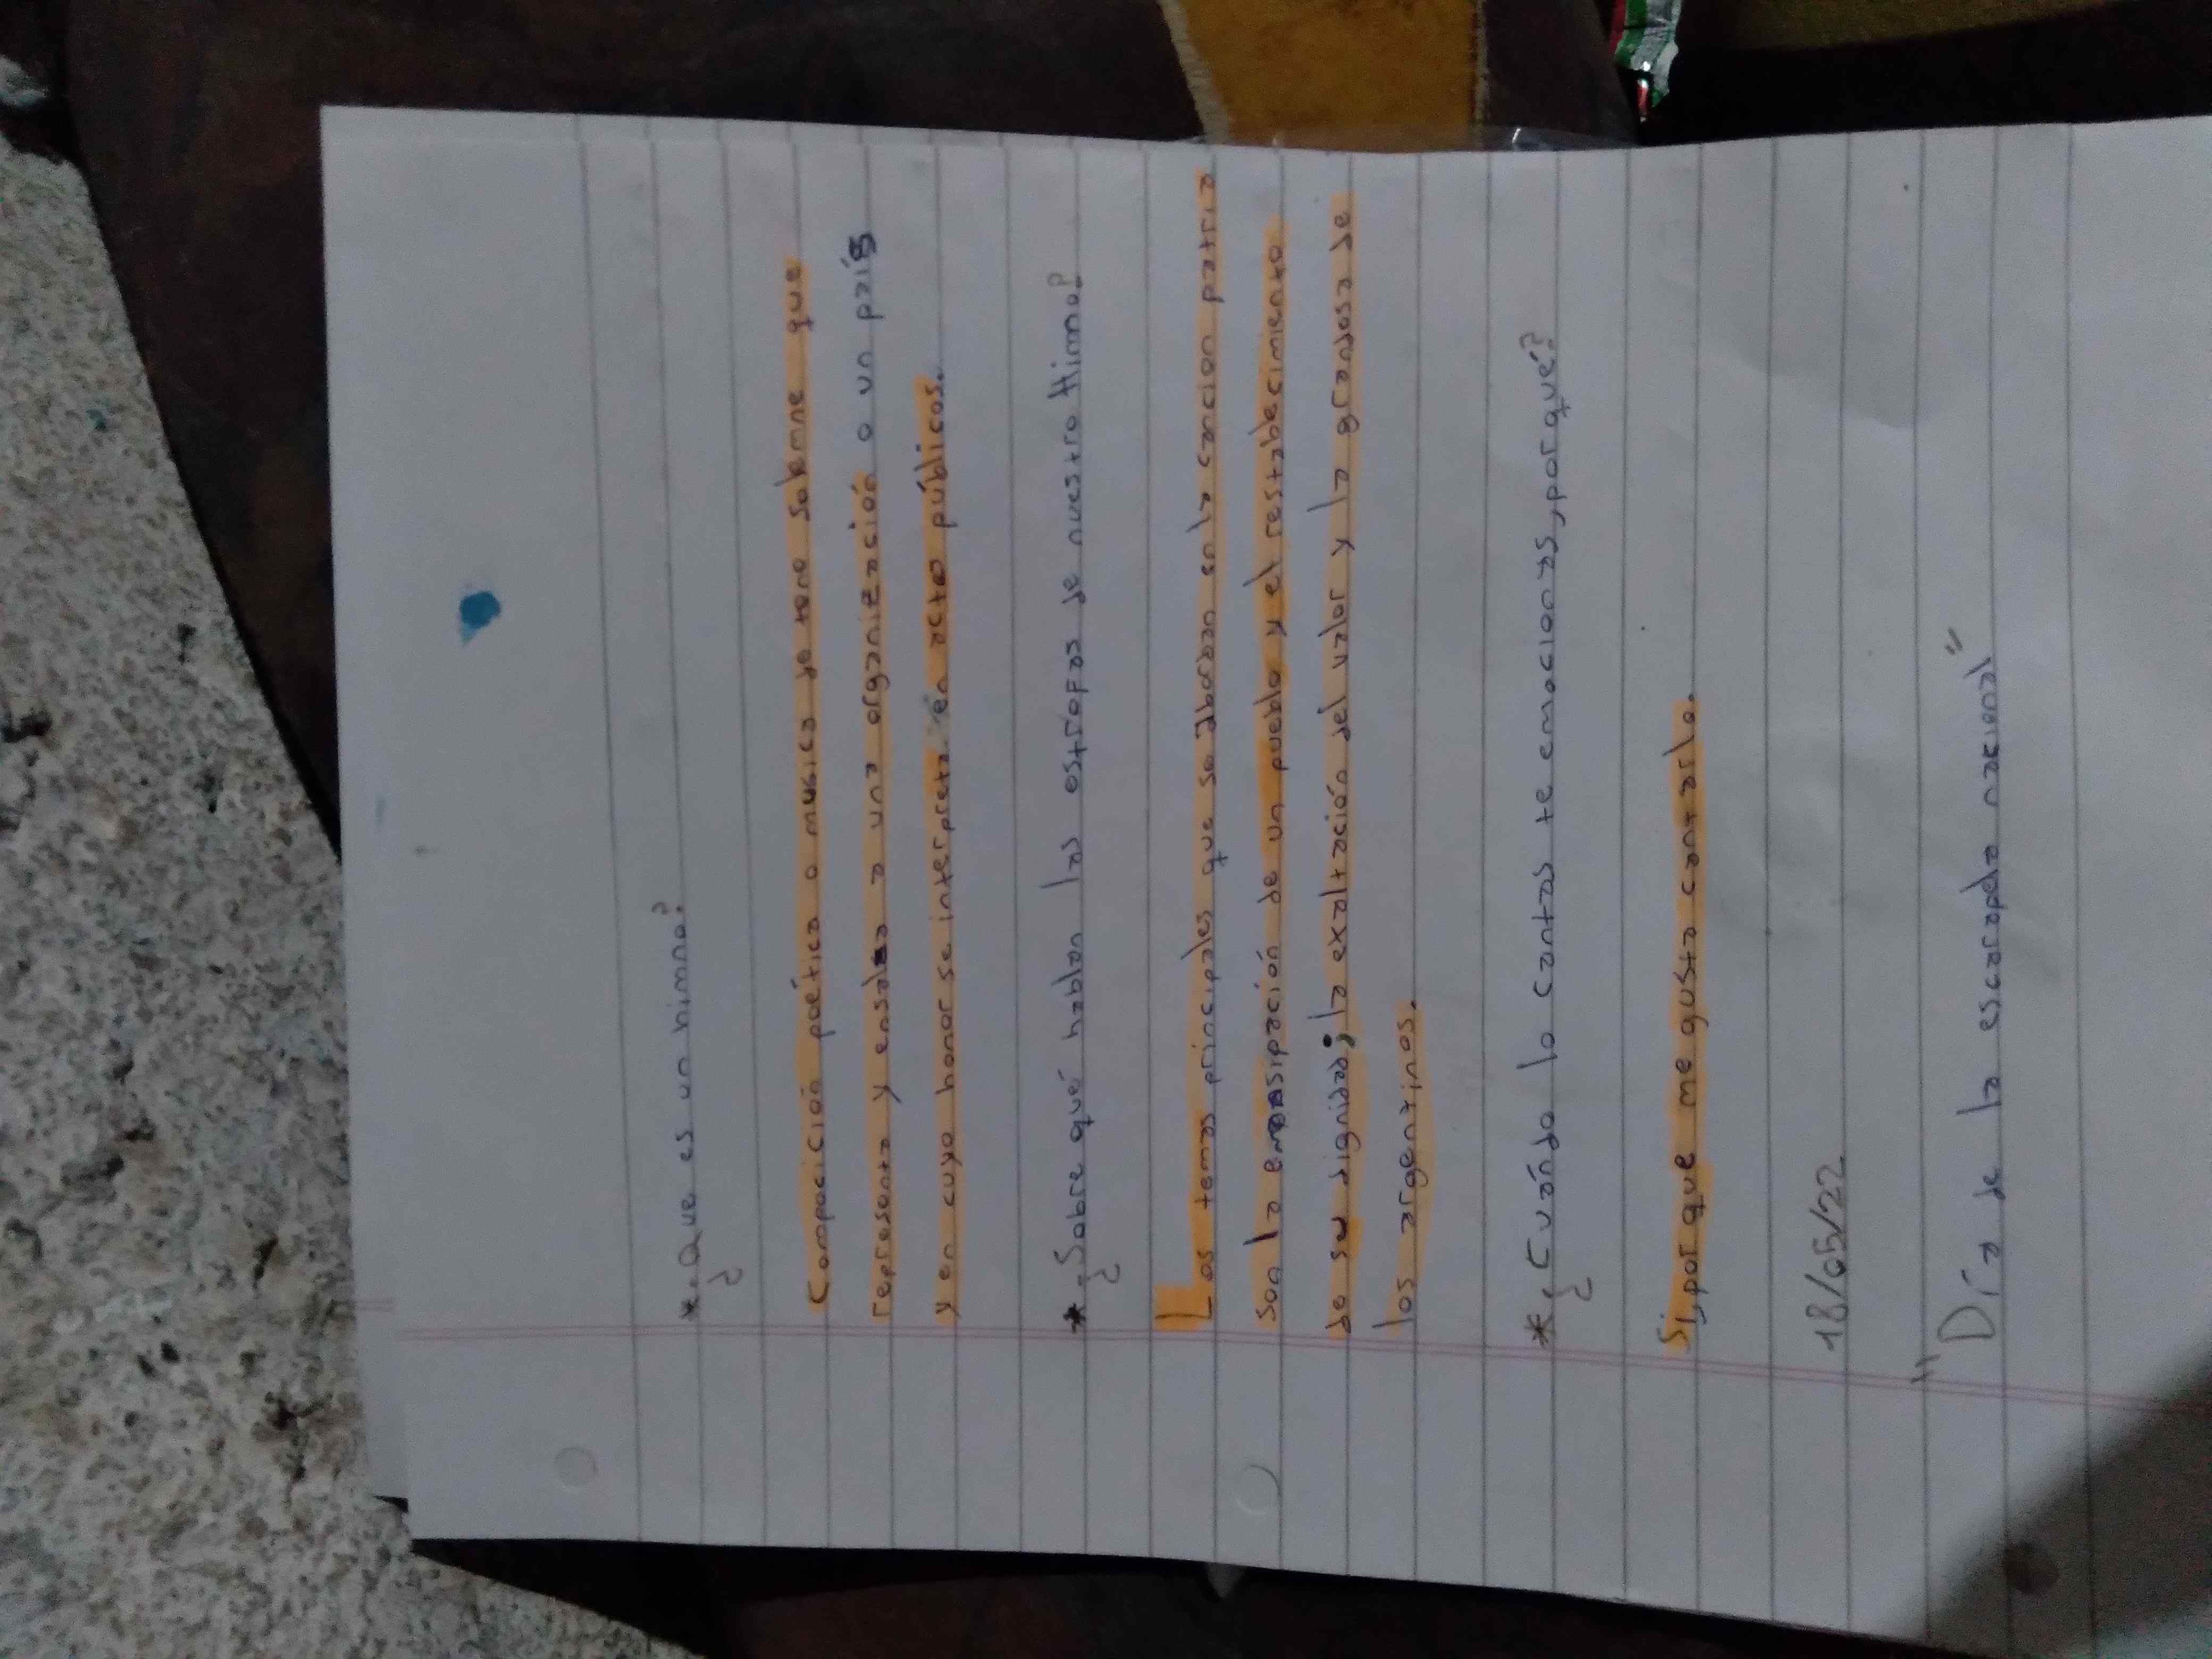 *. ¿Que es un himno?
Composición poética o musica de tono solemne que
representa y ensalsa a una organización o un país
y en cuyo honor se interpreta en acto públicos.
*. ¿Sobre qué hablan las estrofas de nuestro Himno?
Los temas principales que se abordan en la canción patria
son la emansipación de un pueblo y el restablecimiento
de su dignidad; la exaltación del valor y la grandosa de
los argentinos.
*. ¿Cuándo lo cantas te emocionas, por qué?
Si, por que me gusta cantarlo.
18/05/22
"Día de la escarapela nacional"